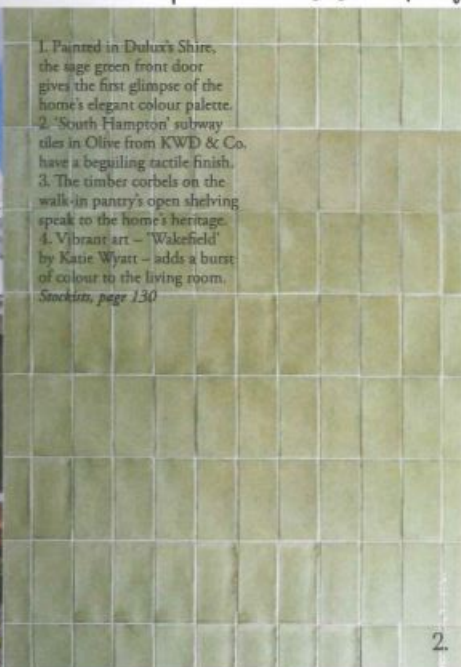 1. Painted in Dulux's Shire,
the sage green front door
gives the first glimpse of the
home's elegant colour palette.
2. 'South Hampton' subway
tiles in Olive from KWD & Co.
have a beguiling tactile finish.
3. The timber corbels on the
walk-in pantry's open shelving
speak to the home's heritage.
4. Vibrant art – 'Wakefield'
by Katie Wyatt – adds a burst
of colour to the living room.
Stockists, page 130
2.